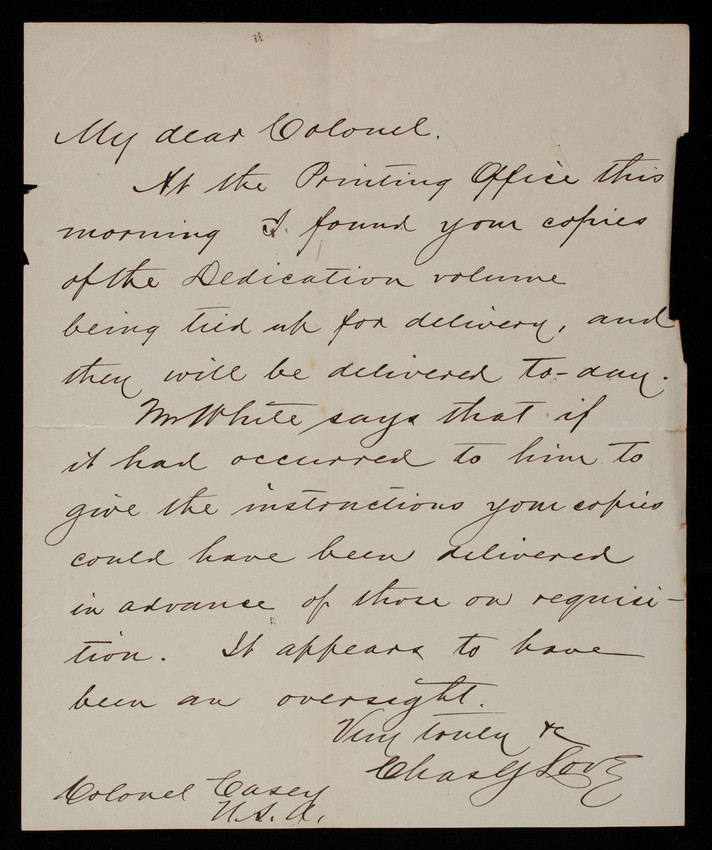 My dear Colonel.
At the Printing Office this
morning I found your copies
of the Dedication volume
being tied up for delivery, and
they will be delivered to-day.
Mr White says that if
it had occurred to him to
give the instructions your copies
could have been delivered
in advance of those on requisi-
tion. It appears to have
been an oversight.
Very truly &c
Chas G Love
Colonel Casey
U.S.A.